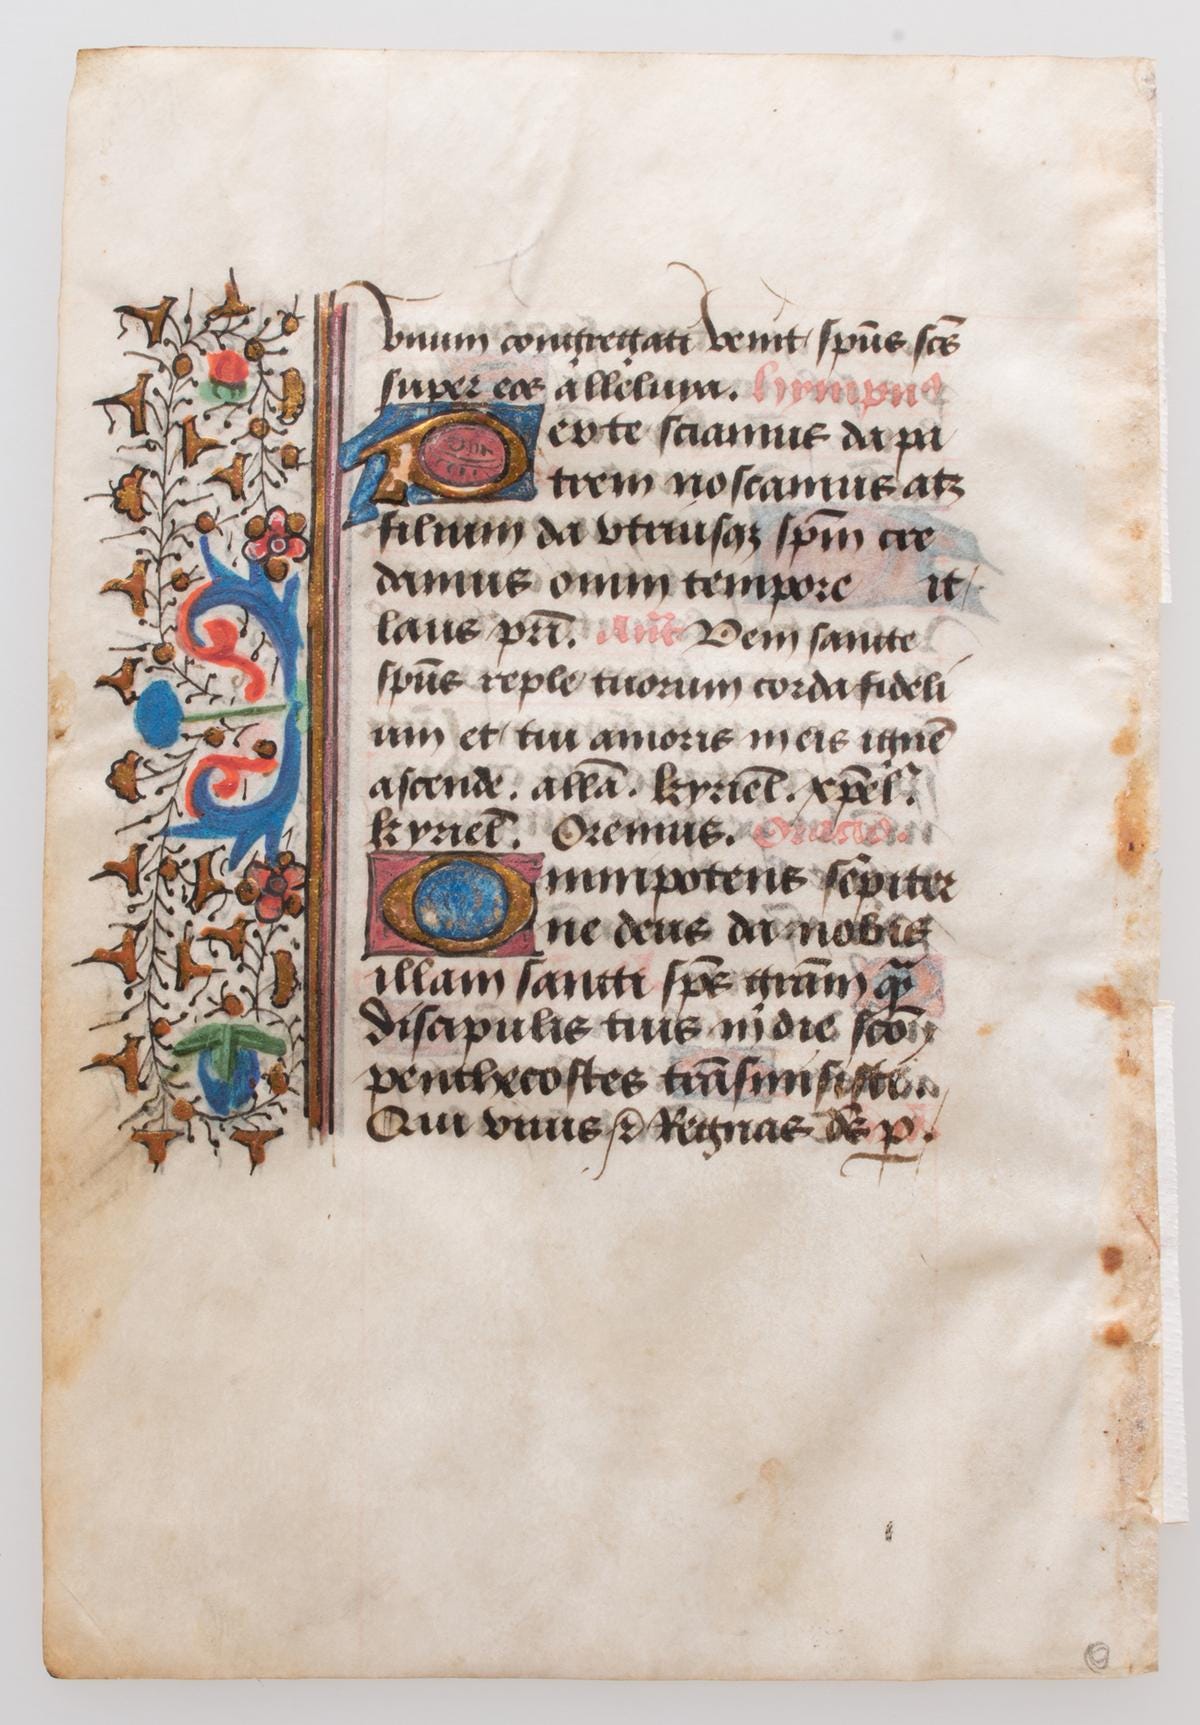 vnum congregati venit spūs scs̄
super eos alleluya. hympnꝰ
Per te sciamus da pa
trem noscamus atꝫ
filium da vtriusqꝫ spm̄ cre
damus omni tempore it
laus pri̅. Ant̄ Veni sancte
spūs reple tuorum corda fideli
um et tui amoris in eis ignē
ascende. allā. kyriel̄. xp̄el̄.
kyriel̄. Oremus. Oracio.
Omnipotens sēpiter
ne deus da nobis
illam sancti sp̄s grām q̄
discipulis tuis in die scōn
penthecostes trāsmisisti.
Qui viuis ⁊ Regnas dēs p.